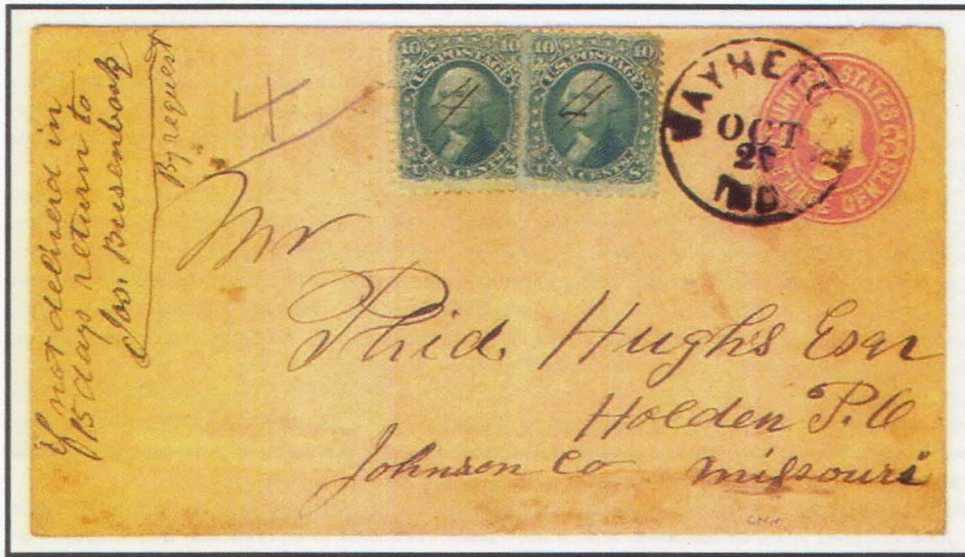 If not delivered in
15 days return to
Jos. Beusenbark
By request
4
10 10
U.S. POSTAGE
TEN CENTS
4
10 10
U.S. POSTAGE
TEN CENTS
4
OCT
IND
UNITED STATES
THREE CENTS
Mr
Phid. Hughs Esqr
Holden P.O
Johnson Co Missouri